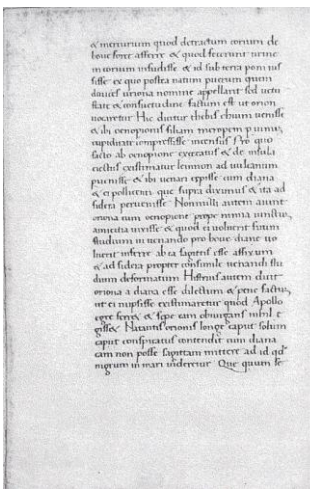 & mercurium quod detractum corium de
boue foret afferre & quod fecerunt urine
in corium infudisse & id sub terra poni ius
sisse ex quo postea natum puerum quem
uriona nomine appellarit sed uetu
state & consuetudine factum est ut orion
uocaretur Hic dicitur thebis chium uenisse
& ibi oenopionis filiam meropem p uinu
cupiditate compressisse incensus Pro quo
facto ab oenopione excecatus & de insula
eiectus existimatur lemnon ad uulcanum
puenisse & ibi
& que supra diximus & ita ad
sidera peruenisse Nonnulli autem aiunt
oriona cum oenopione prope nimia
amicitia uixisse & quod ei uoluerit suum
studium in uenando pro boue diane uo
luerit inferre ab ea sagittis esse affixum
& ad sidera propter consimile uenandi stu
dium deformatum Histrius autem dicit
oriona a diana esse dilectum & pene factum
ut ei nupsisse existimaretur quod Apollo
egre ferret & sepe eam obiurgans nihil e
gisset Natantis orionis longe caput solum
caput conspicatus contendit cum diana
eam non posse sagittam mittere ad id qd
nigrum in mari uideretur Que quum se